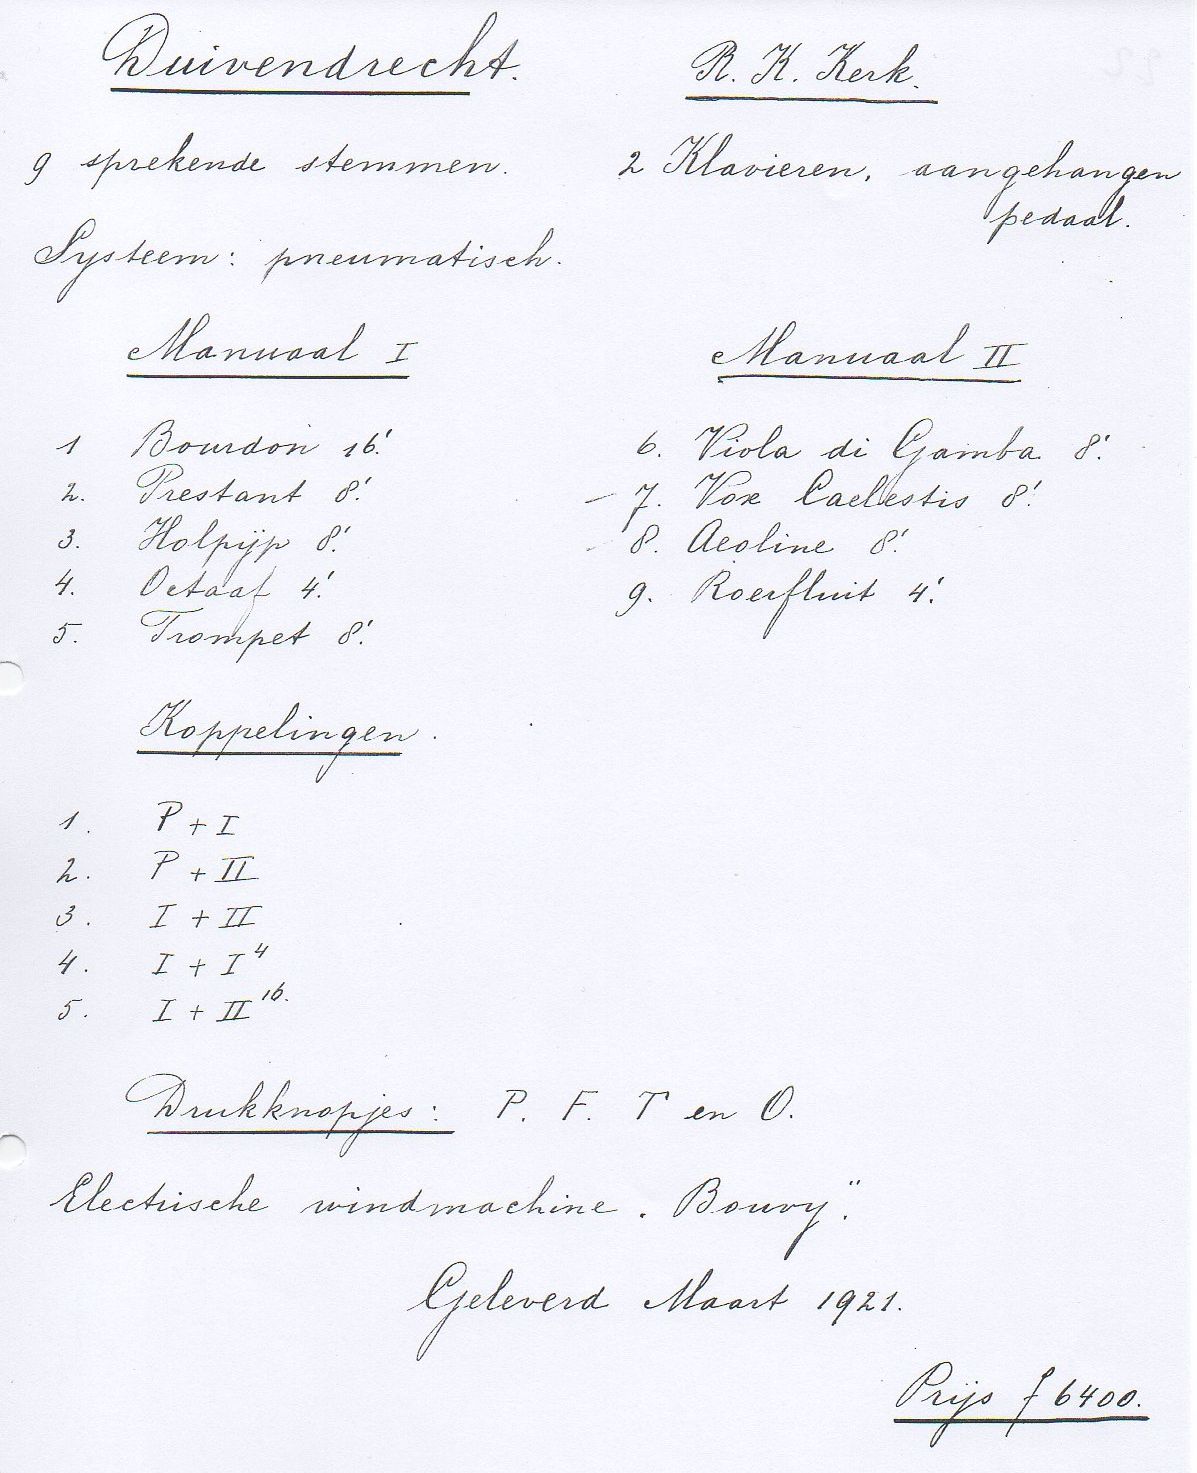 Duivendrecht. R. K. Kerk.
9 sprekende stemmen. 2 Klavieren, aangehangen
pedaal.
Systeem: pneumatisch.
Manuaal I
1 Bourdon 16'.
2. Prestant 8'.
3. Holpijp 8'.
4. Octaaf 4'.
5. Trompet 8'.
Manuaal II
6. Viola di Gamba 8'.
7. Vox Caelestis 8'.
8. Aeoline 8'.
9. Roerfluit 4'.
Koppelingen.
1. P + I
2. P + II
3. I + II
4. I + I⁴
5. I + II¹⁶·
Drukknopjes: P. F. T en O.
Electrische windmachine „Bouvy".
Geleverd Maart 1921.
Prijs ƒ 6400.